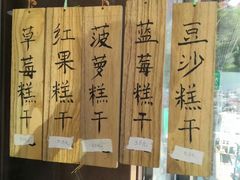 草莓糕干
红果糕干
菠萝糕干
蓝莓糕干
豆沙糕干